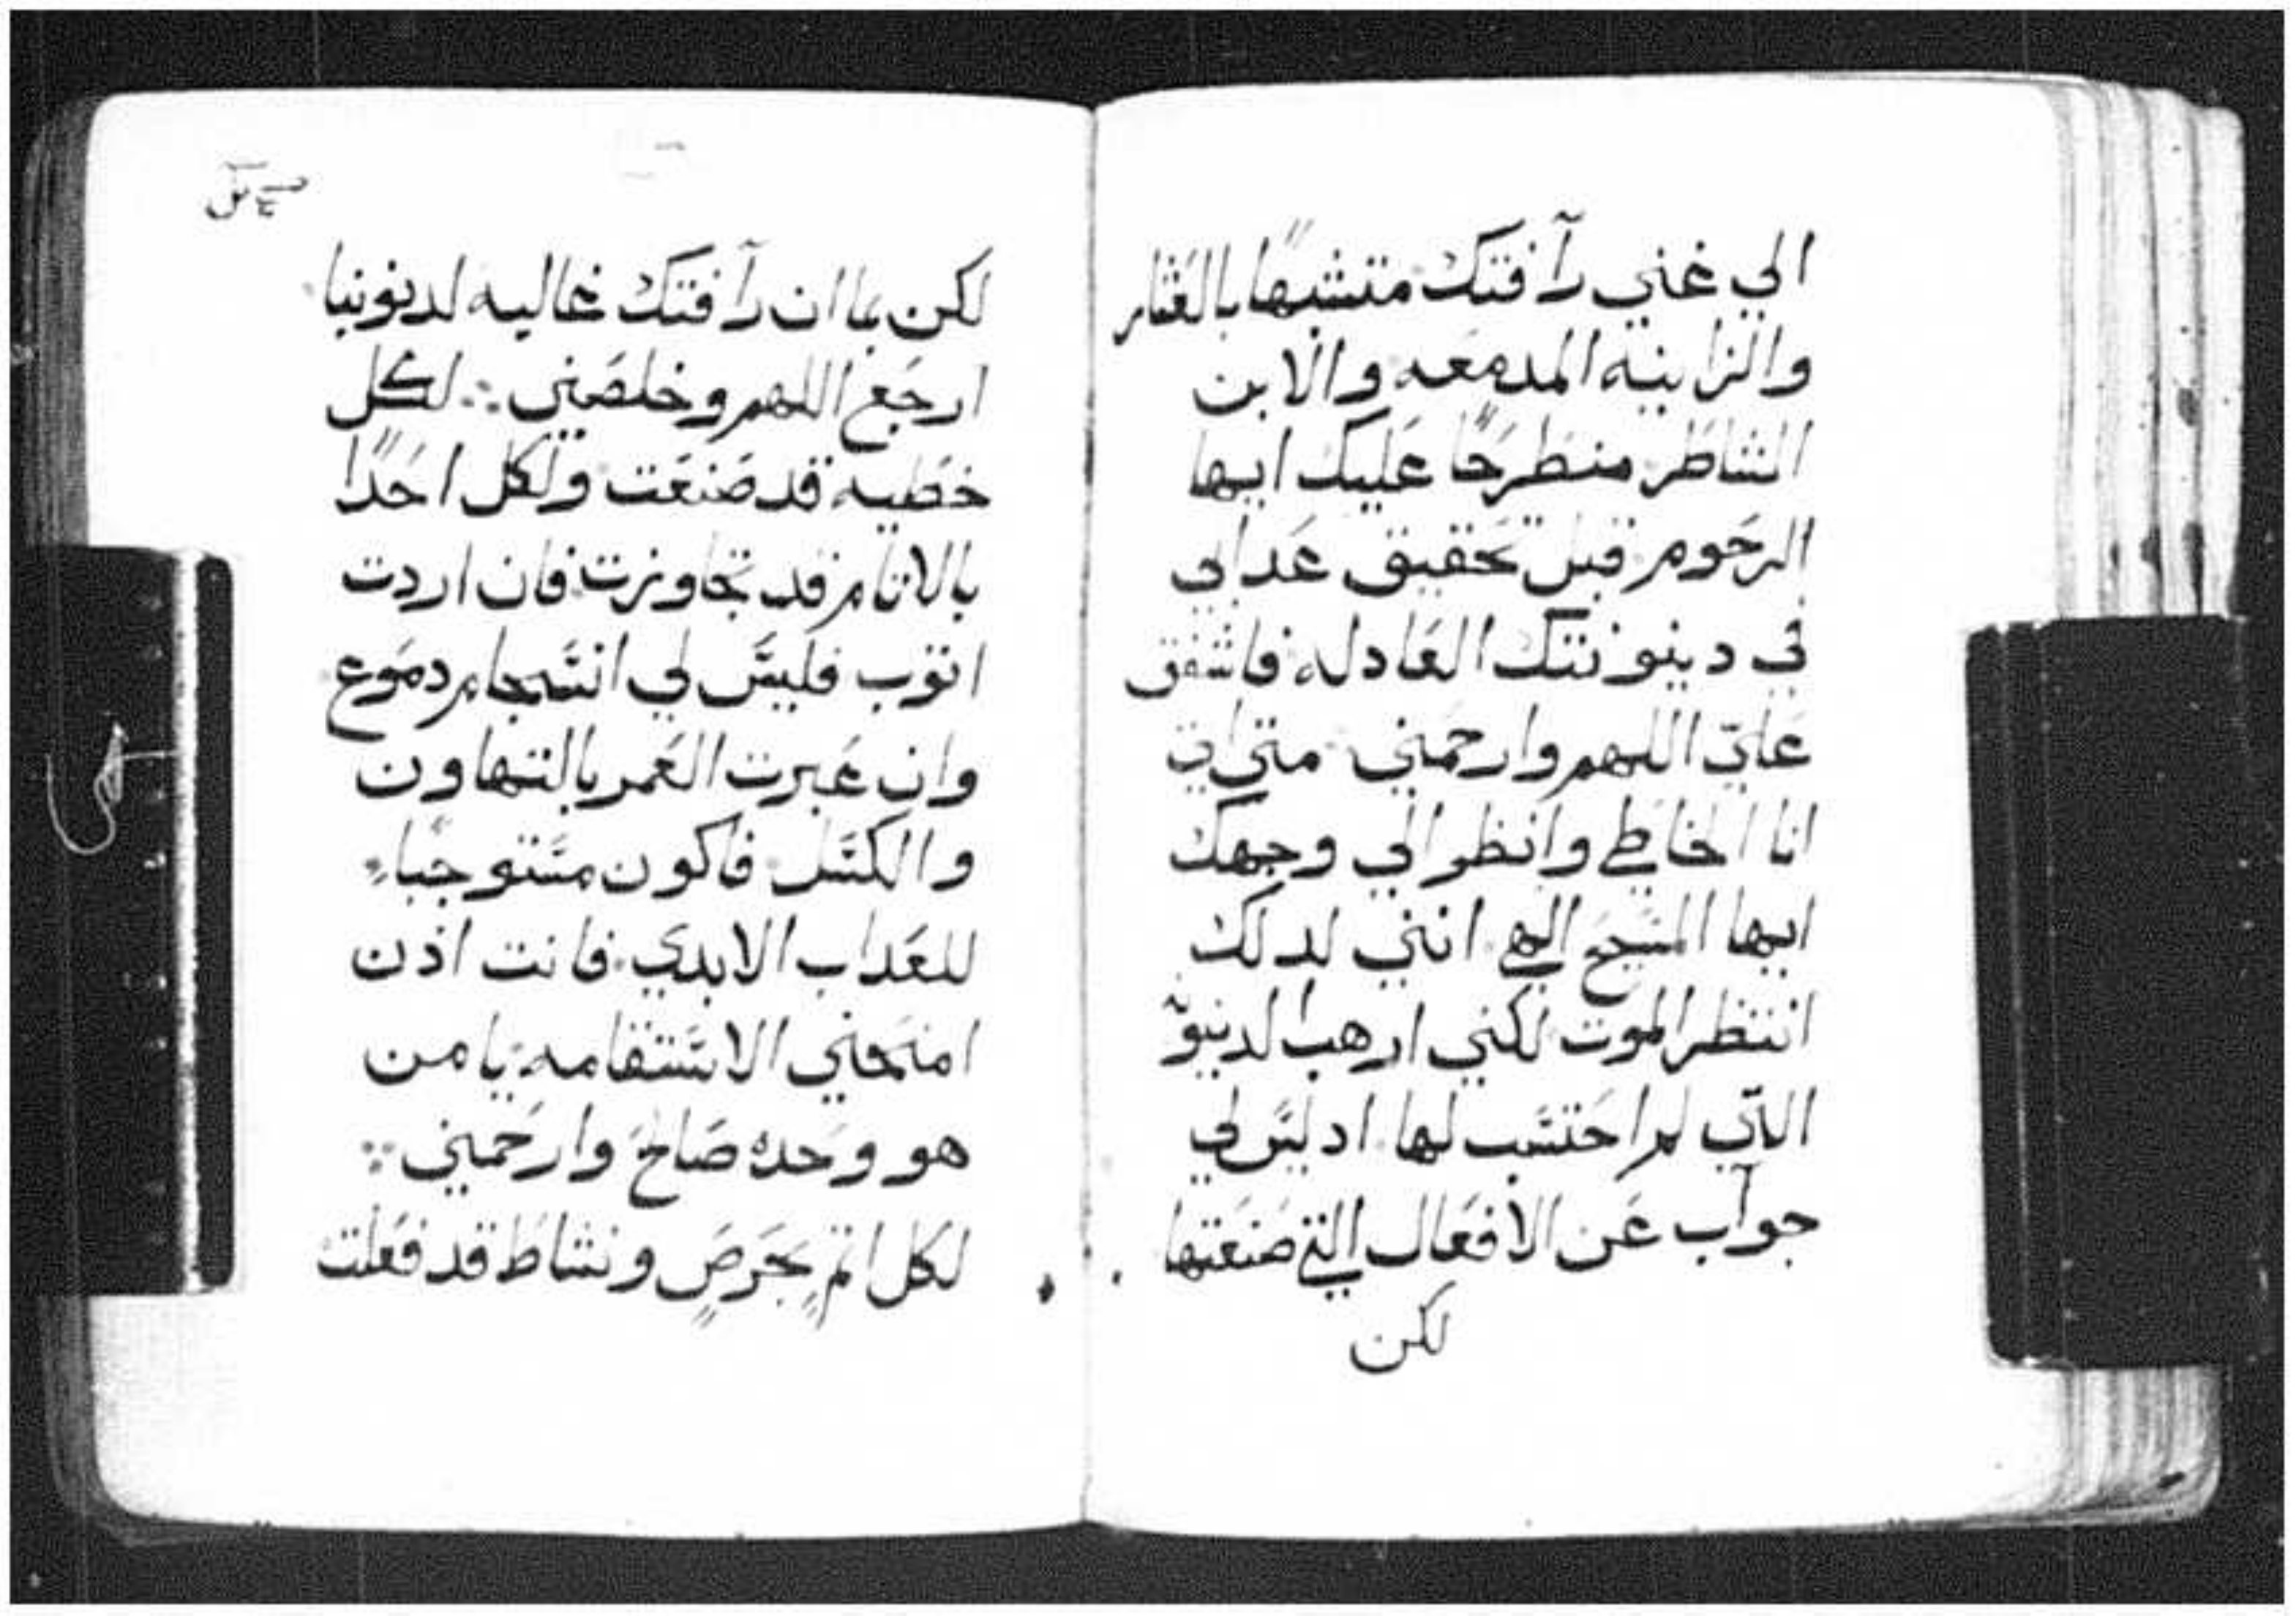 الي غني رآفتك متشبهاً بالعَشار
والزانيه المدمعه والابن
الشاطر منطرحًا عليك ايها
الرحوم قبل تحقيق عدابي
في دينونتك العادله فاشفق
عليّ اللهم وارحمني متي اتي
انا الخاطي وانظر الي وجهك
ايها المسيح الهي انني لدلك
انتظر الموت لكني ارهب الدينو
التي لم احتسب لها ادليس لي
جوآب عن الافعال التي صنعتها
لكن
لكن بما ان رآفتك غاليه لدينونيا
ارجع اللهم وخلصني ∴ لكل
خطيه قد صنعت ولكل احدًا
بالاتام قد تجاوزت فان اردت
اتوب فليس لي انسجام دموع
وان عبرت العمر بالتهاون
والكسل فاكون مستوجباً
للعداب الابدي فانت اذن
امنحني الاستقامه يا من
هو وحده صالح وارحمني ∵
لكل اتمٍ بحرصٍ ونشاط قد فعلت